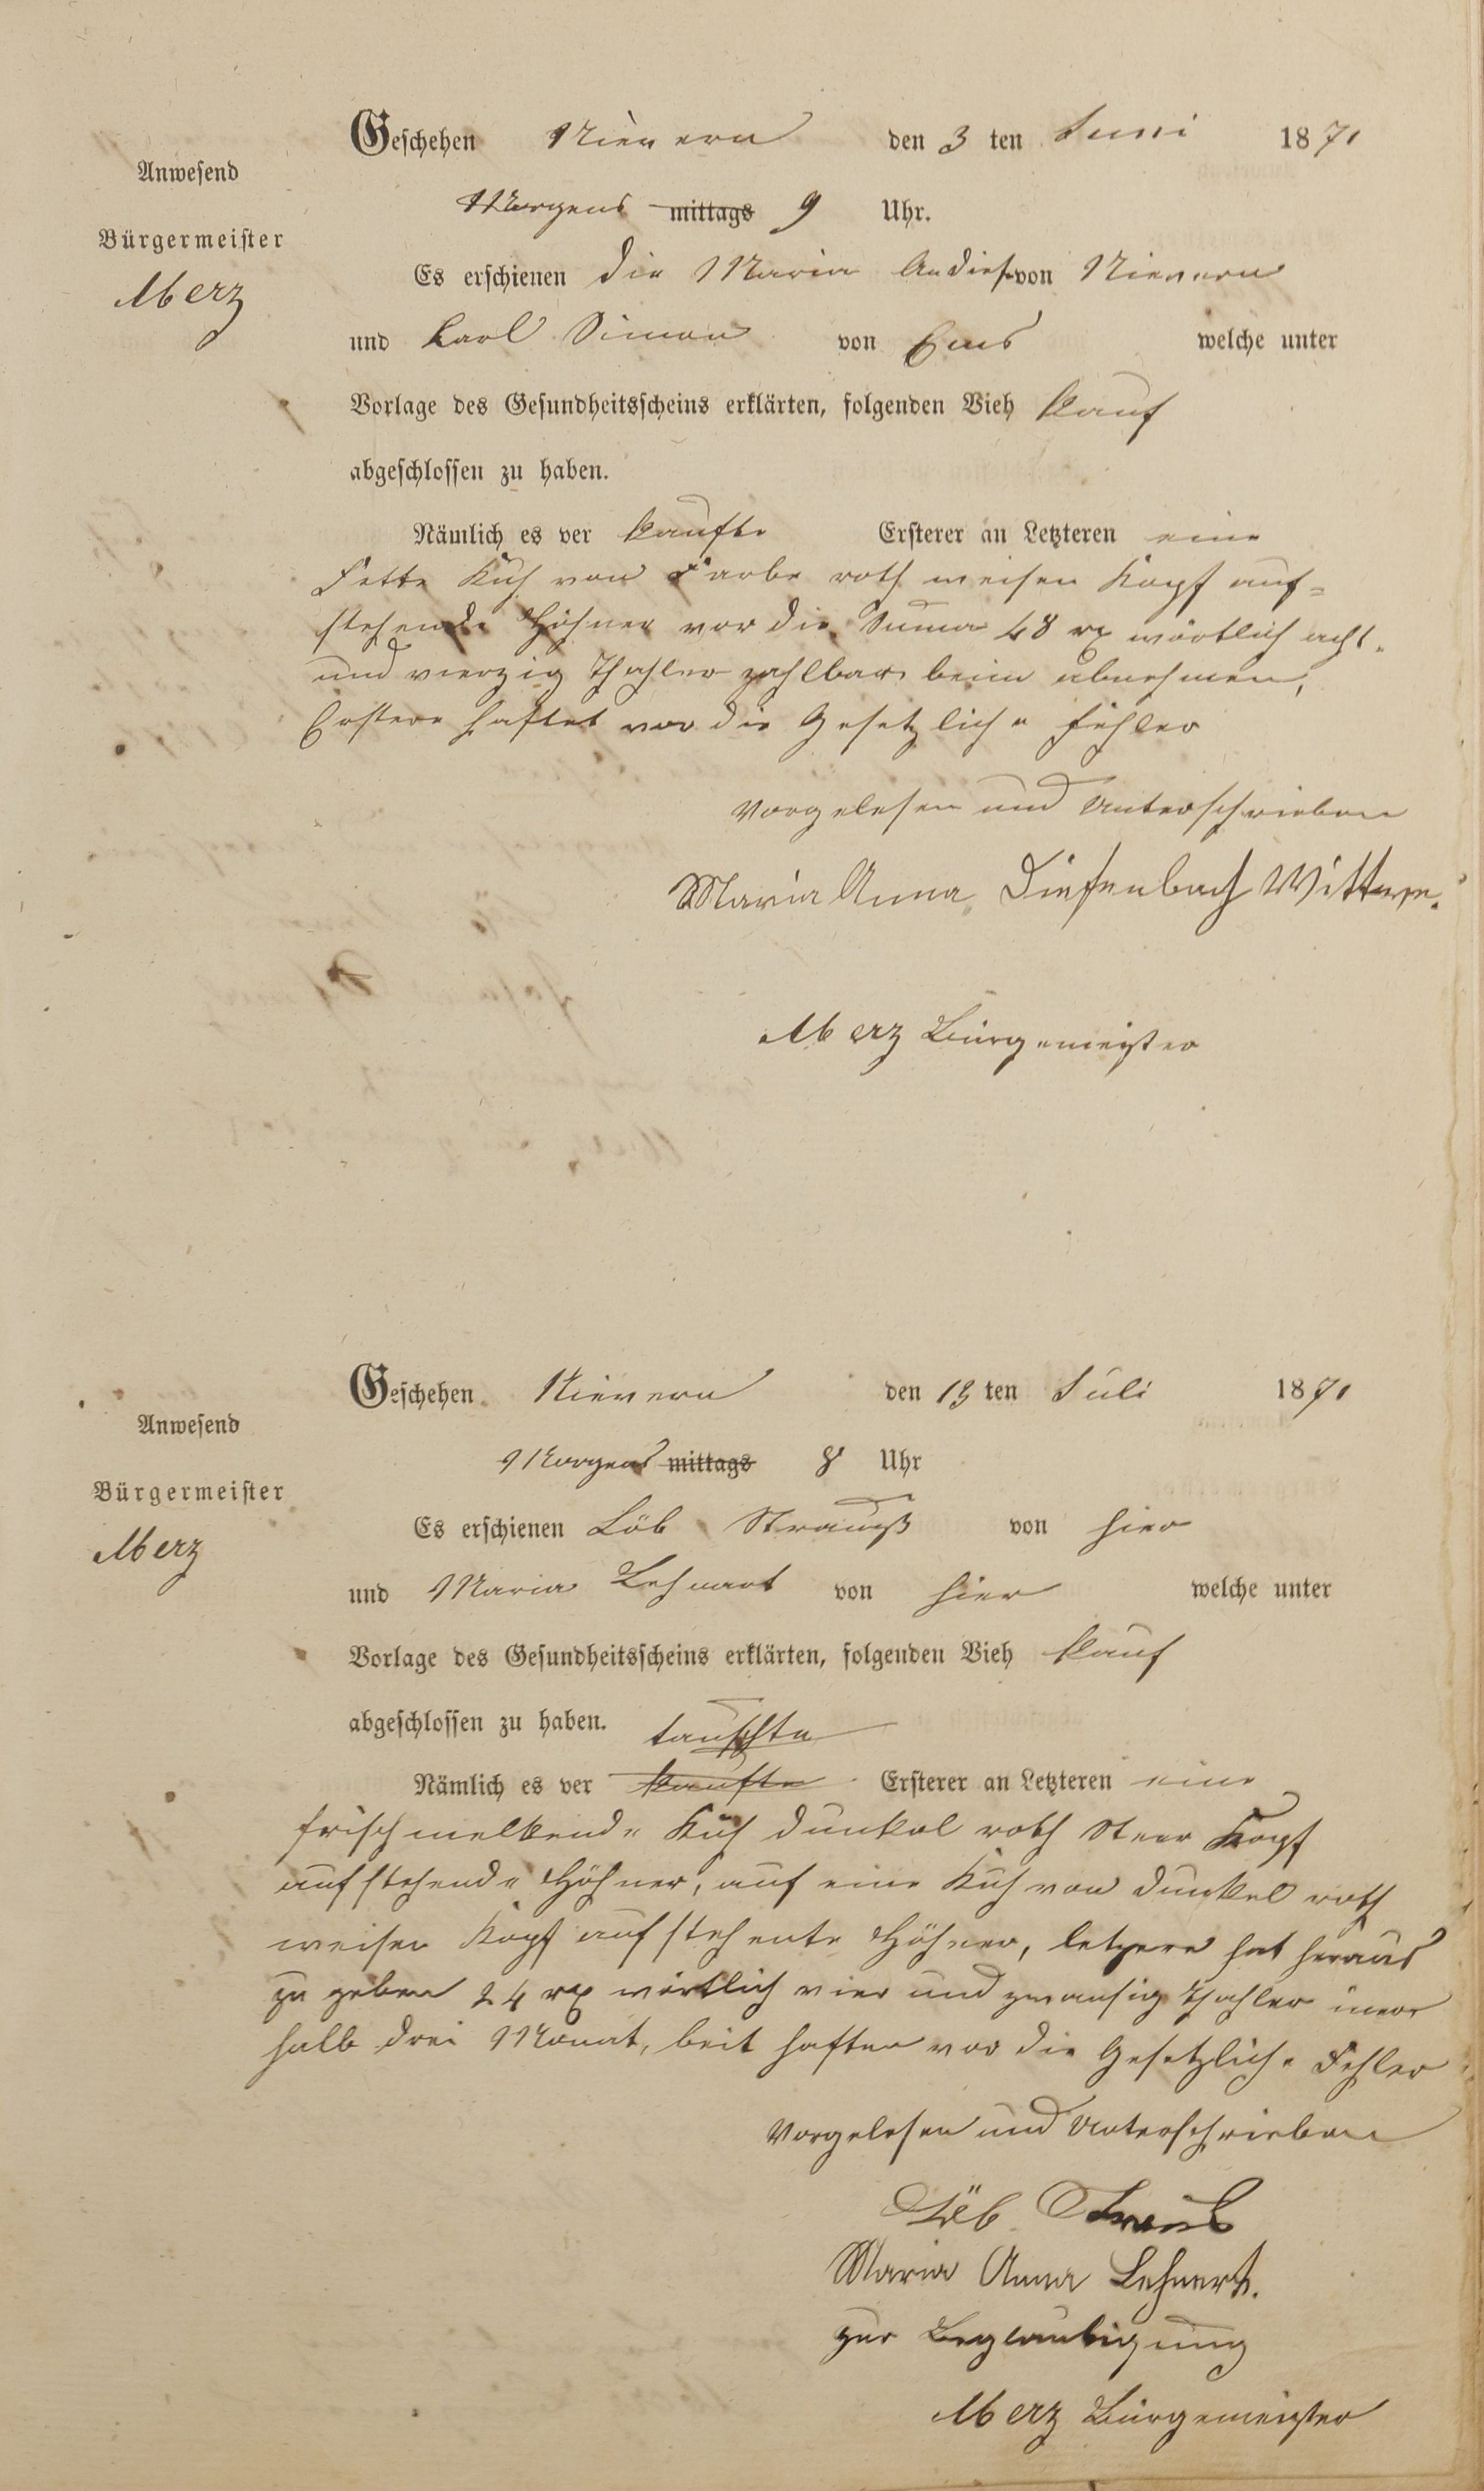 Geschehen Nievern den 3 ten Juni 1871
Anwesend
Morgens mittags 9 Uhr.
Bürgermeister
Es erschienen die Maria von Nievern
Merz
und Carl Simon von Ems welche unter
Vorlage des Gesundheitsscheins erklärten, folgenden Vieh kauf
abgeschlossen zu haben.
Nämlich es ver kaufte Ersterer an Letzteren eine
Fette Kuh von Farbe roth weisen Kopf auf-
stehende Höhner vor die Suma 48 rx wörtlich acht-
und vierzig Thahler zahlbar beim abnehmen,
Erstere haftet vor die Gesetzliche fehler
Vorgelesen und Unterschrieben
Maria Anna Diefenbach Wittwe.
Merz Bürgemeister
Geschehen Nievern den 13 ten Juli 1871
Anwesend
Morgens mittags 8 Uhr
Bürgermeister
Es erschienen Löb Strauß von hier
Merz
und Maria Lehnart von hier welche unter
Vorlage des Gesundheitsscheins erklärten, folgenden Vieh kauf
abgeschlossen zu haben.
tauschte
Nämlich es ver kaufte Ersterer an Letzteren eine
frisch melkende Kuh dunkel roth Kopf
aufstehende Höhner, auf eine Kuh von dunkel roth
weisen Kopf aufstehente Höhner, letzere hat heraus
zu geben 24 rx wörtlich vier und zwansig Thahler iner
halb drei Monat, beit haften vor die Gesetzliche Fehler
Vorgelesen und Unterschrieben
Löb Straus
Maria Anna Lehnert.
zur Beglaubigung
Merz Bürgemeister